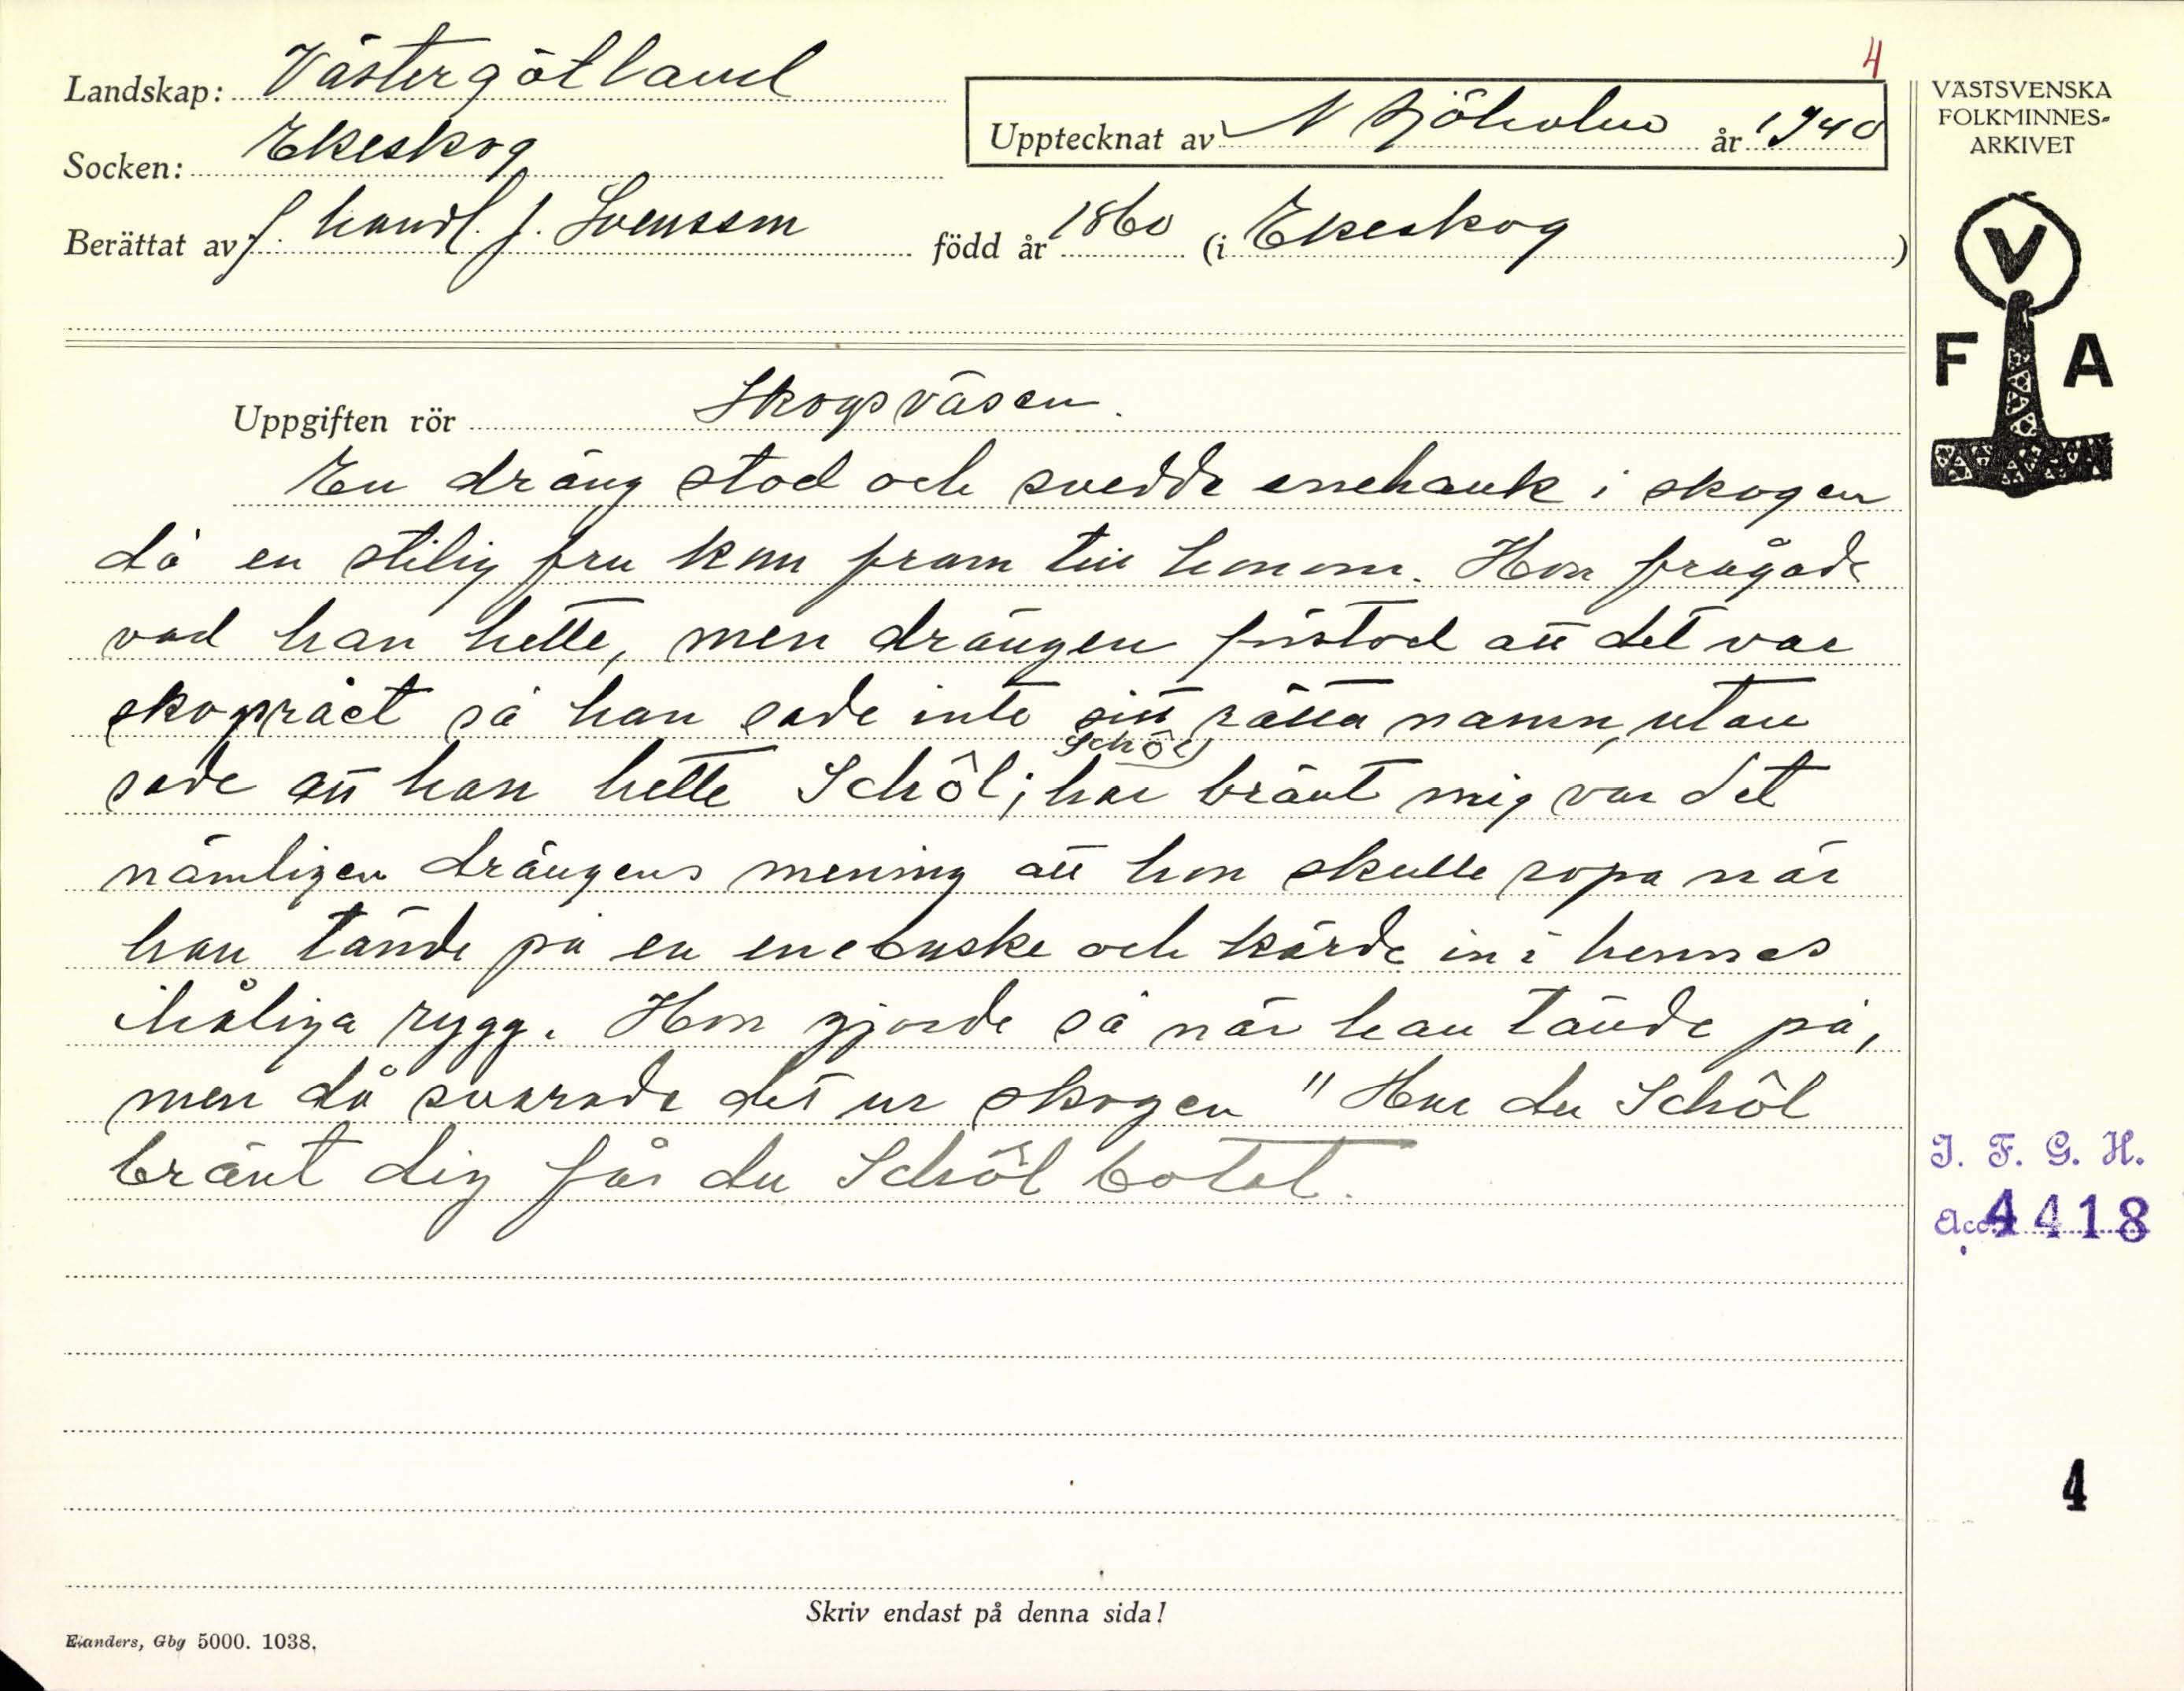 4
Landskap: Västergötland
Upptecknat av N Sjöholm år 1940
Socken: Ekeskog
Berättat av f. handl. J. Svensson född år 1860 (i Ekeskog)
VÄSTSVENSKA
FOLKMINNES-
ARKIVET
V
F A
Uppgiften rör Skogsväsen.
En dräng stod och svedde enehank i skogen
då en stilig fru kom fram till honom. Hon frågade
vad han hette, men drängen förstod att det var
skogsrået så han sade inte sitt rätta namn, utan
sade att han hette Schöl; Schöl har bränt mig var det
nämligen drängens mening att hon skulle ropa när
han tände på en enebuske och körde in i hennes
ihåliga rygg. Hon gjorde så när han tände på,
men då svarade det ur skogen "Har du Schöl
bränt dig får du Schöl botat.
I. F. G. H.
Acc. 4418
4
Skriv endast på denna sida!
Elanders, Gbg 5000. 1038.